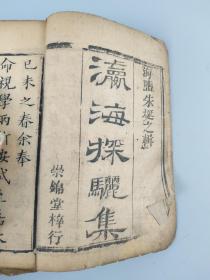 海鹽朱堃之輯
瀛海探驪集
崇錦堂梓行
己未之春余奉
命視學